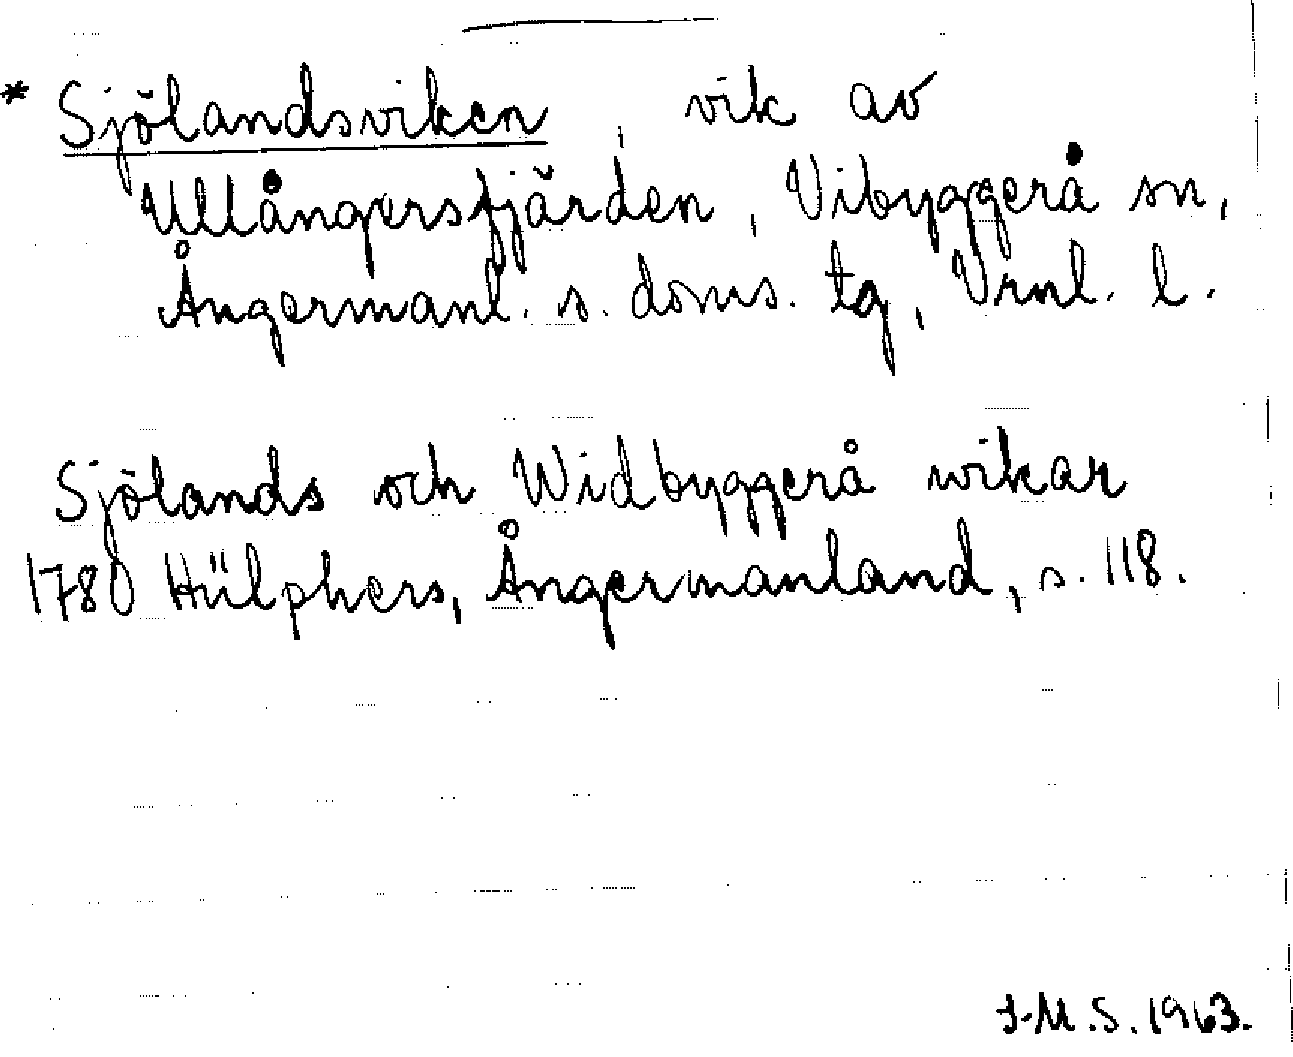 * Sjölandsviken, vik av
Ullångersfjärden, Vibyggerå sn,
Ångermanl. s. doms. tg, Vrnl. l.
Sjölands och Widbyggerå wikar
1780 Hülphers, Ångermanland, s. 118.
J.M.S. 1963.